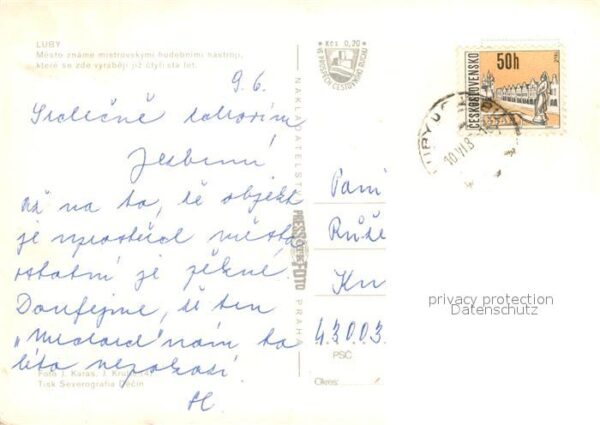 LUBY
Město známé mistrovskými hudebními nástroji,
které se zde vyrábějí již čtyři sta let.
9. 6.
Srdečně zdravím
Až na to, že objekt
je uprostřed města
ostatní je pěkné.
Doufejme, že ten
nám to
léto nepokazí
Foto J. Karas, J.
Tisk Severografia Děčín
NAKLADATELSTVÍ
PRESSFOTO
PRAHA
Kčs 0,20
50h
ČESKOSLOVENSKO
LUBY U
10.VI.
Paní
Růže
Kn
43003
PSČ
Okres:
privacy protection
Datenschutz